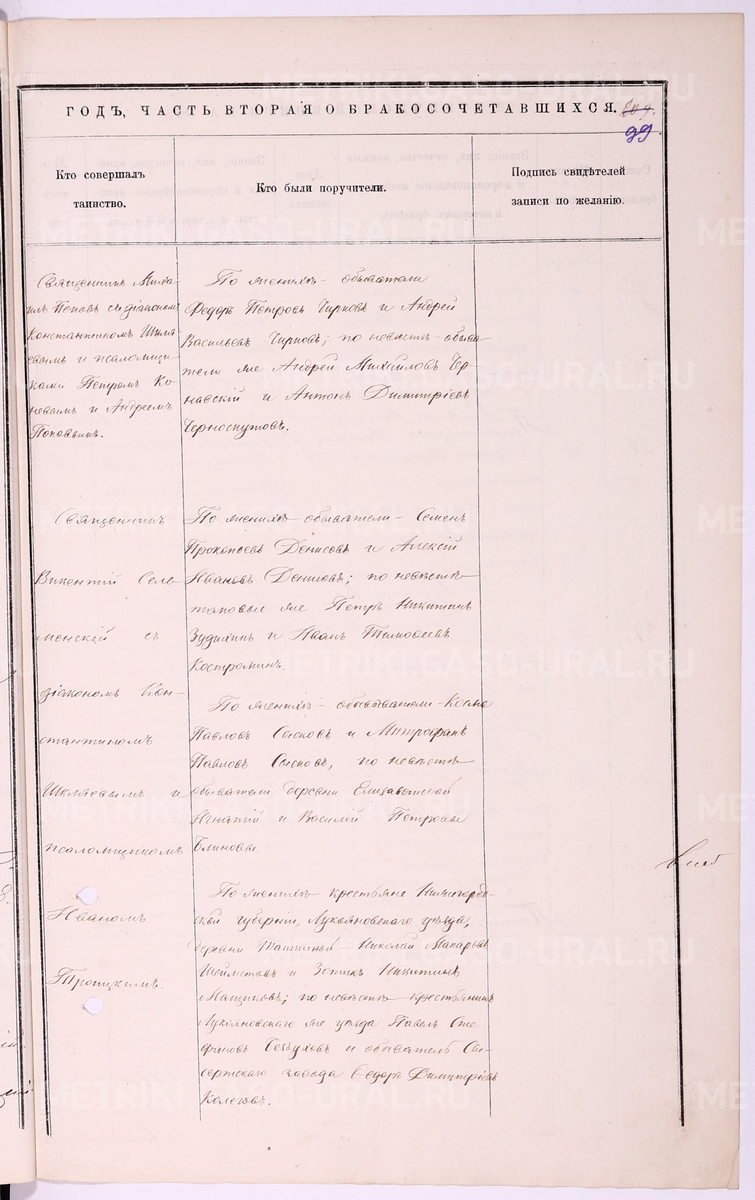 ГОДЪ, ЧАСТЬ ВТОРАЯ О БРАКОСОЧЕТАВШИХСЯ.
99
Кто совершалъ
таинство.
Кто были поручители.
Подпись свидѣтелей
записи по желанію.
Священникъ Миха-
илъ Поповъ съ діакономъ
Константиномъ Шкля-
евымъ и псаломщи-
ками Петромъ Ко-
невымъ и Андреемъ
Поповымъ.
По женихѣ - обыватели
Ѳедоръ Петровъ Чирковъ и Андрей
Васильевъ Чирковъ; по невѣстѣ - обыва-
тели же Андрей Михайловъ Чер-
навскій и Антонъ Димитріевъ
Черноскутовъ.
Священникъ
Викентій Сель-
менскій съ
діакономъ Кон-
стантиномъ
Шкляевымъ и
псаломщикомъ
Иваномъ
Троицкимъ.
По женихѣ обыватели - Семенъ
Прокопьевъ Денисовъ и Алексій
Ивановъ Денисовъ; по невѣстѣ
таковые же Петръ Никитинъ
Зудихинъ и Иванъ Тимоѳеевъ
Костроминъ.
По женихѣ - обыватели - Косма
Павловъ Сысковъ и Митрофанъ
Павловъ Сысковъ, по невѣстѣ
обыватели деревни Елизаветской
Игнатій и Василій Петровы
Блиновы.
По женихѣ крестьяне Нижегород-
ской губерніи, Лукояновскаго уѣзда,
деревни Николай Макаровъ
и Зотикъ Никитинъ
по невѣстѣ крестьянинъ
Лукояновскаго же уѣзда Павелъ Сте-
фановъ и обыватель Сы-
сертскаго завода Ѳедоръ Димитріевъ
Колеговъ.
METRIKI.GASO-URAL.RU